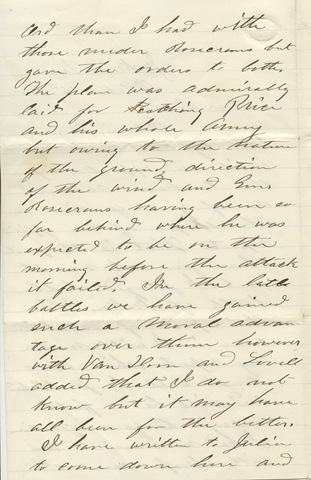 Ord than I had with
those under Rosecrans but
gave the orders to both.
The plan was admirably
laid for catching Price
and his whole Army
but owing to the nature
of the ground, direction
of the wind and Gen.
Rosecrans having been so
far behind where he was
expected to be on the
morning before the attack
it failed. In the late
battles we have gained
such a moral advan
tage over them however
with Van Dorn and Lovell
added that I do not
know but it may have
all been for the better.
I have written to Julia
to come down here and